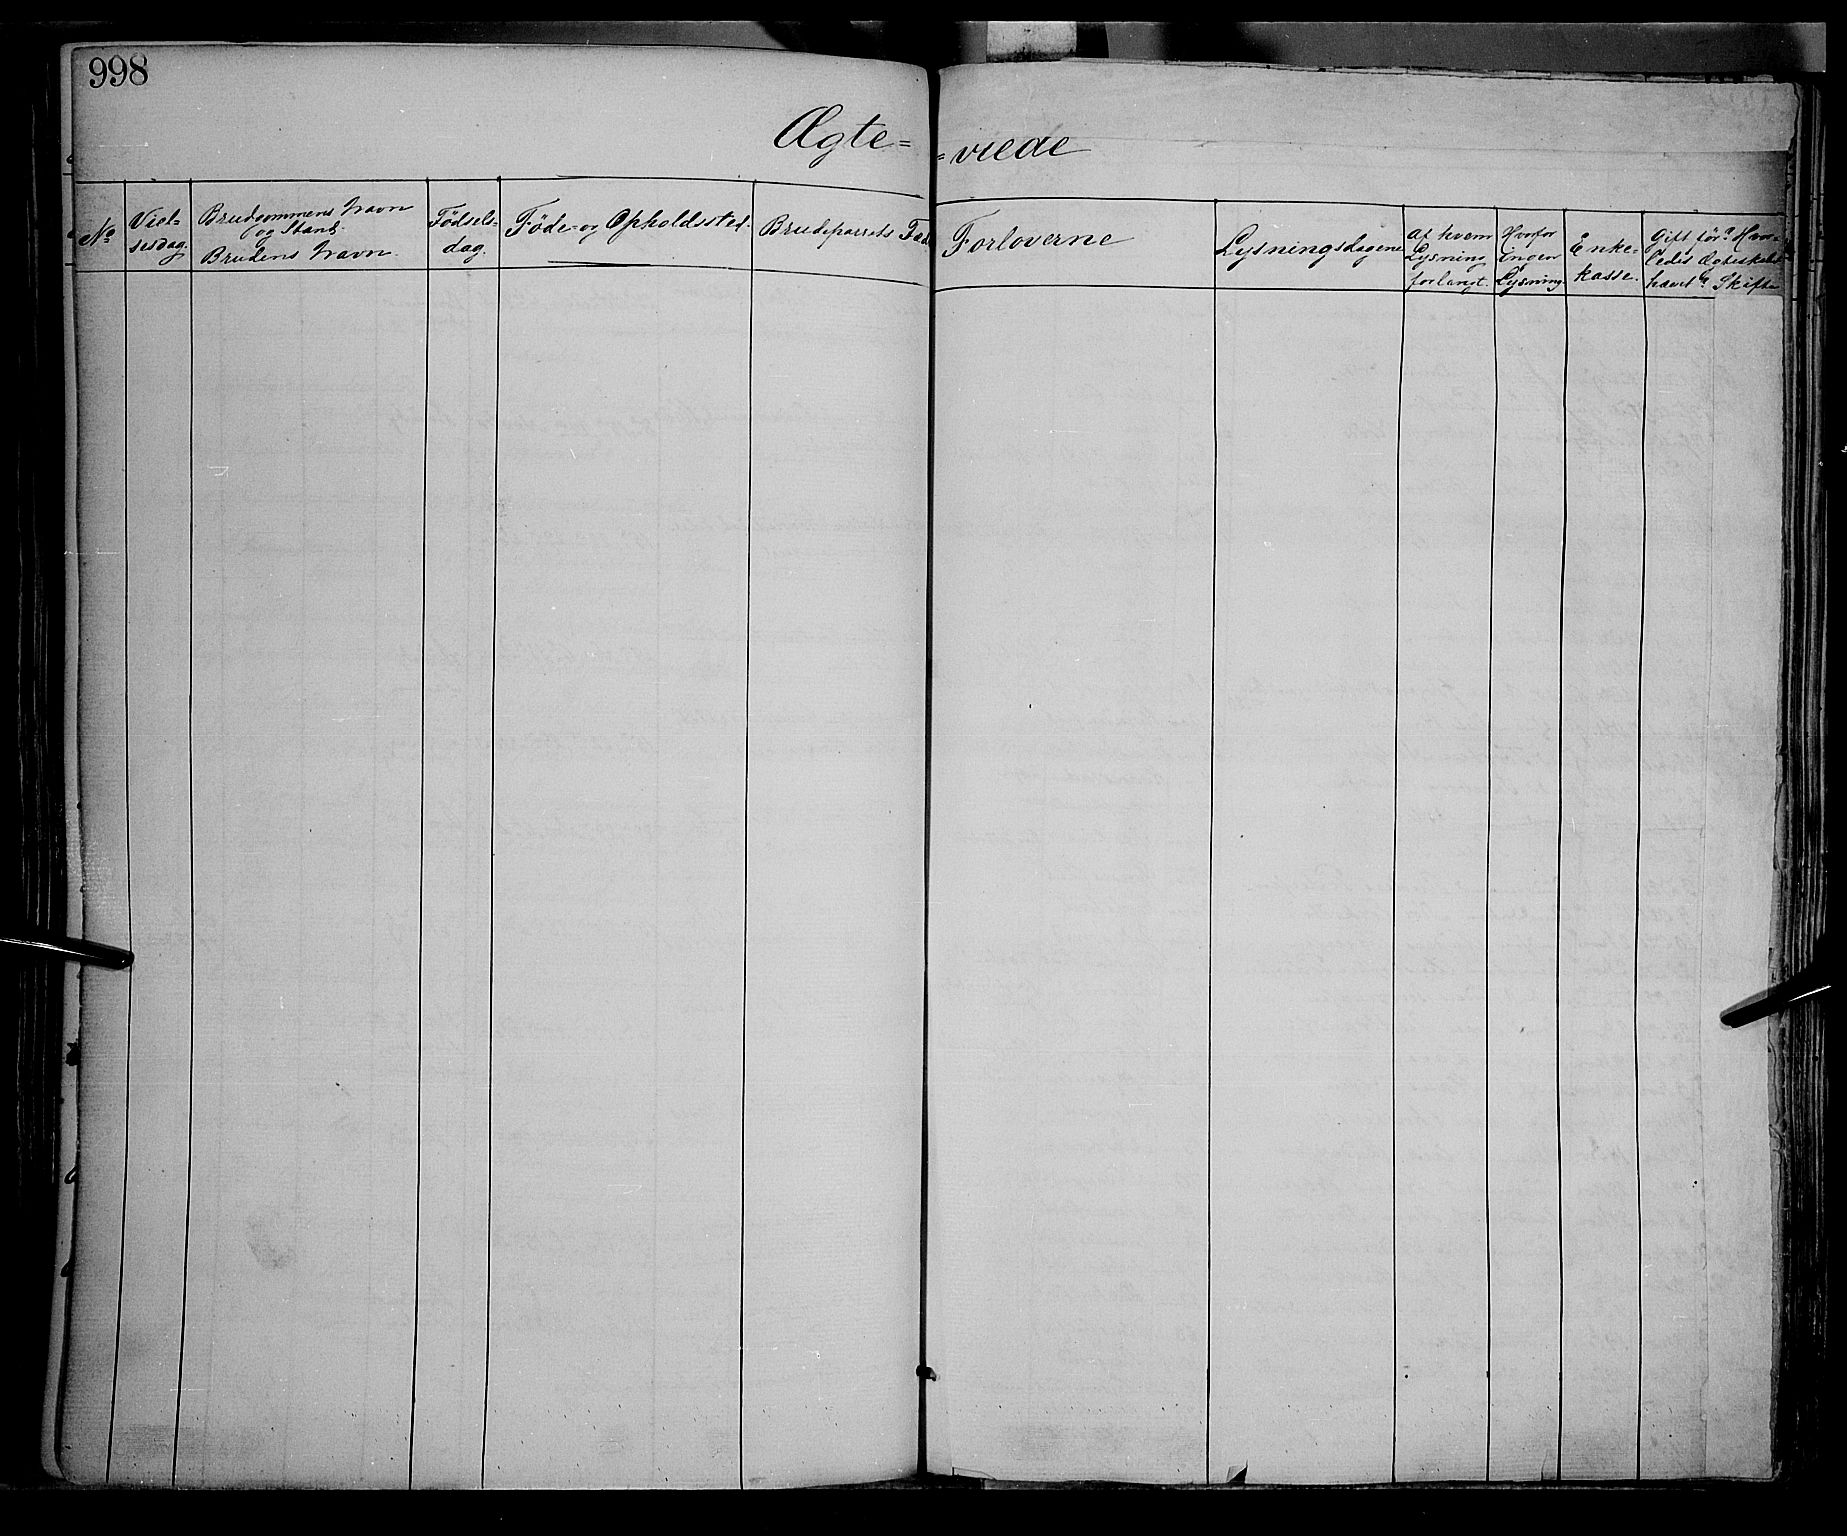 998
Ægte= =viede
No
Viel-
sesdag.
Brudgommens Navn
og Stand.
Brudens Navn.
Fødsels-
dag.
Føde- og Opholdssted.
Brudeparrets Fæd
Forloverne
Lysningsdagene
Af hvem
Lysning
forlangt.
Hvorfor
ingen
Lysning.
Enke-
kasse.
Gift før? Hvor-
ledes Ægteskabet
hævet? Skifte